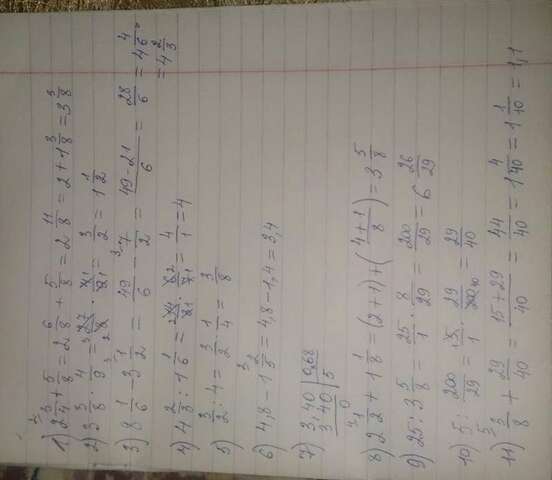 1) 2 3/4 + 5/8 = 2 6/8 + 5/8 = 2 11/8 = 2 + 1 3/8 = 3 3/8
2) 3 3/8 · 4/9 = 27/8 · 4/9 = 3/2 = 1 1/2
3) 8 1/6 - 3 1/2 = 49/6 - 7/2 = 49-21/6 = 28/6 = 4 4/6
= 4 2/3
4) 4 2/3 : 1 1/6 = 14/3 · 6/7 = 4/1 = 4
5) 3/2 : 4 = 3/2 · 1/4 = 3/8
6) 4,8 - 1 2/5 = 4,8 - 1,4 = 3,4
7) 3,40 | 0,68
3 40 | 5
0
8) 2 1/2 + 1 1/8 = (2+1) + (4+1/8) = 3 5/8
9) 25 : 3 5/8 = 25/1 · 8/29 = 200/29 = 6 26/29
10) 5 : 200/29 = 5/1 · 29/200 = 29/40
11) 3/8 + 29/40 = 15+29/40 = 44/40 = 1 4/40 = 1 1/10 = 1,1